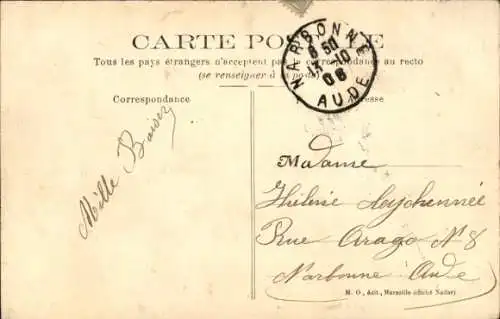 CARTE POSTALE
Tous les pays étrangers n'acceptent pas la correspondance au recto
(se renseigner à la poste)
NARBONNE
6 50
13 10
06
AUDE
Correspondance
Adresse
Mille Baiser
Madame
Rue Arago N° 8
Narbonne Aude
M. O., édit., Marseille (cliché Nadar)